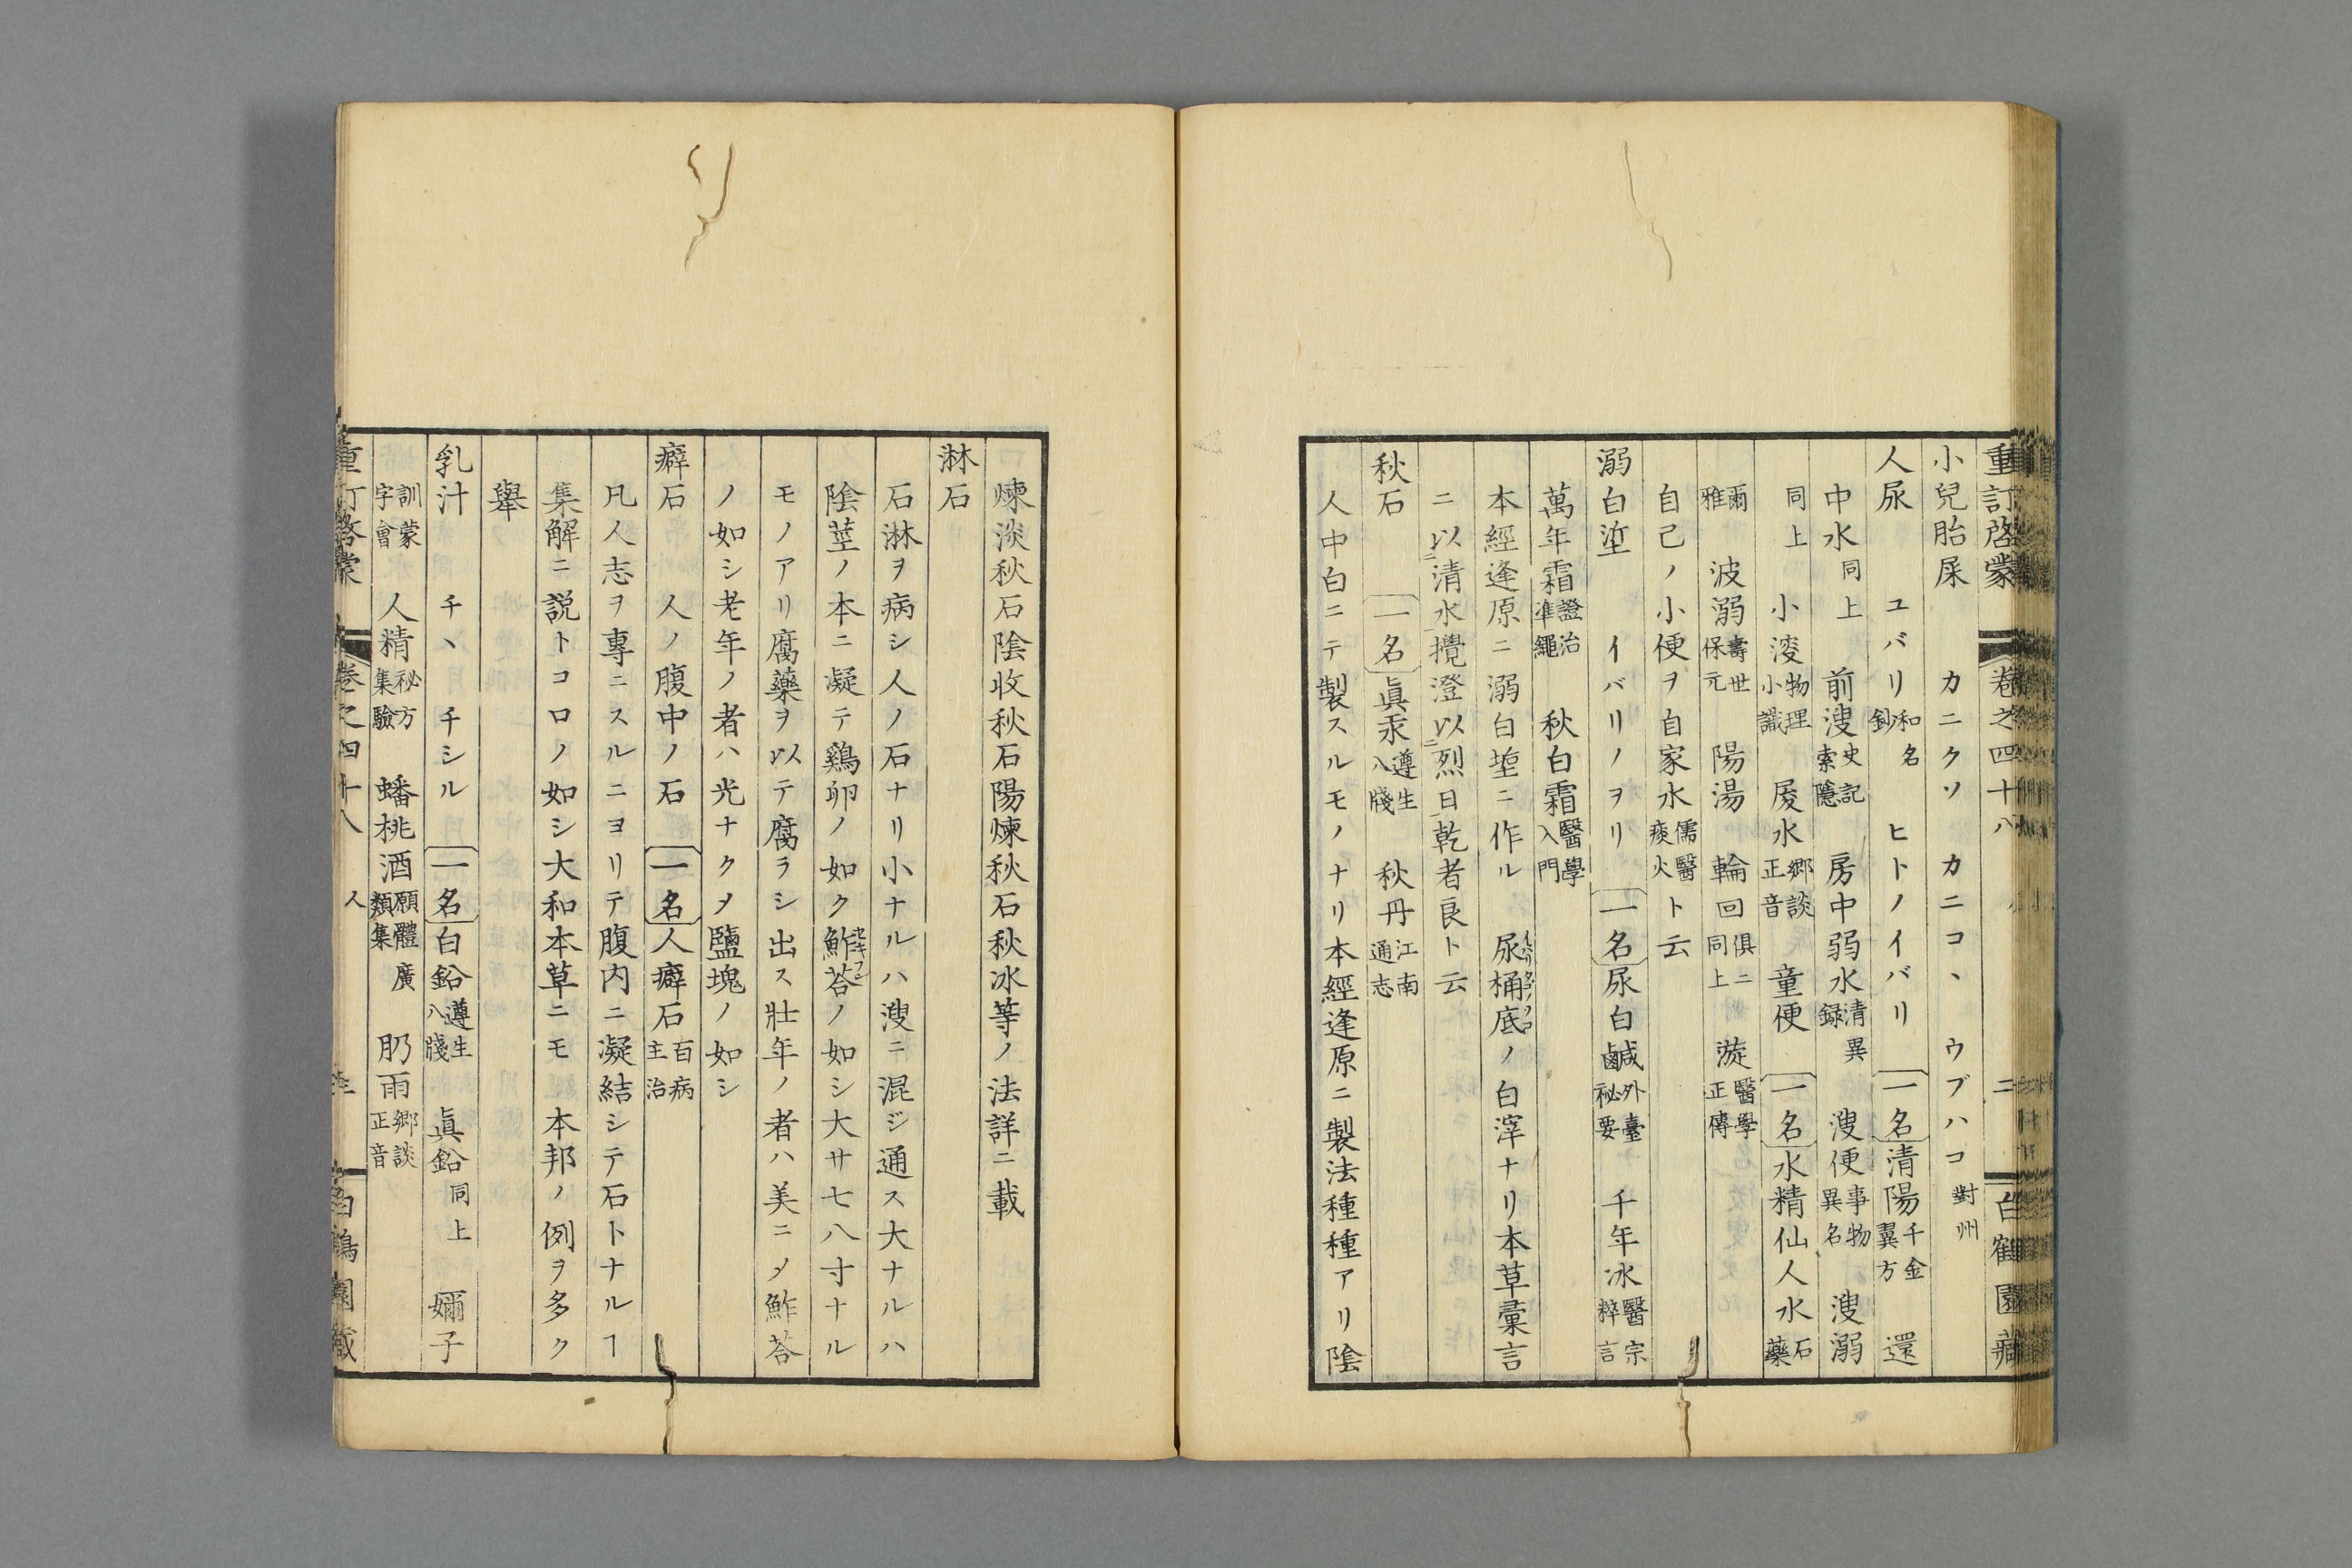 重訂啓蒙 卷之四十八 人 二 白鶴園藏
小兒胎屎 カニクソ カニコヽ ウブハコ對州
人尿 ユバリ和名鈔 ヒトノイバリ 一名清陽千金翼方 還
中水同上 前溲史記索隱 房中弱水清異録 溲便事物異名 溲溺
同上 小浚物理小識 㞙水郷談正音 童便 一名水精仙人水石藥
爾雅 波溺壽世保元 陽湯 輪回倶ニ同上 漩醫學正傳
自己ノ小便ヲ自家水儒醫痰火ト云
溺白垽 イバリノヲリ 一名尿白鹹外臺祕要 千年冰醫宗粹言
萬年霜證治準繩 秋白霜醫學入門
本經逢原ニ溺白垽ニ作ル 尿桶底ノ白滓ナリ本草彙言
ニ以清水攪澄以烈日乾者良ト云
秋石 一名眞汞遵生八牋 秋丹江南通志
人中白ニテ製スルモノナリ本經逢原ニ製法種種アリ陰
煉淡秋石陰收秋石陽煉秋石秋冰等ノ法詳ニ載
淋石
石淋ヲ病シ人ノ石ナリ小ナルハ溲ニ混ジ通ス大ナルハ
陰莖ノ本ニ凝テ鷄卵ノ如ク鮓荅ノ如シ大サ七八寸ナル
モノアリ腐藥ヲ以テ腐ラシ出ス壯年ノ者ハ美ニメ鮓荅
ノ如シ老年ノ者ハ光ナクメ鹽塊ノ如シ
癖石 人ノ腹中ノ石 一名人癖石百病主治
凡人志ヲ專ニスルニヨリテ腹内ニ凝結シテ石トナルヿ
集解ニ説トコロノ如シ大和本草ニモ本邦ノ例ヲ多ク
舉
乳汁 チヽ チシル 一名白鉛遵生八牋 眞鉛同上 嬭子
訓蒙字會 人精秘方集驗 蟠桃酒願體廣類集 肭雨郷談正音
重訂啓蒙 卷之四十八 人 白鶴園藏